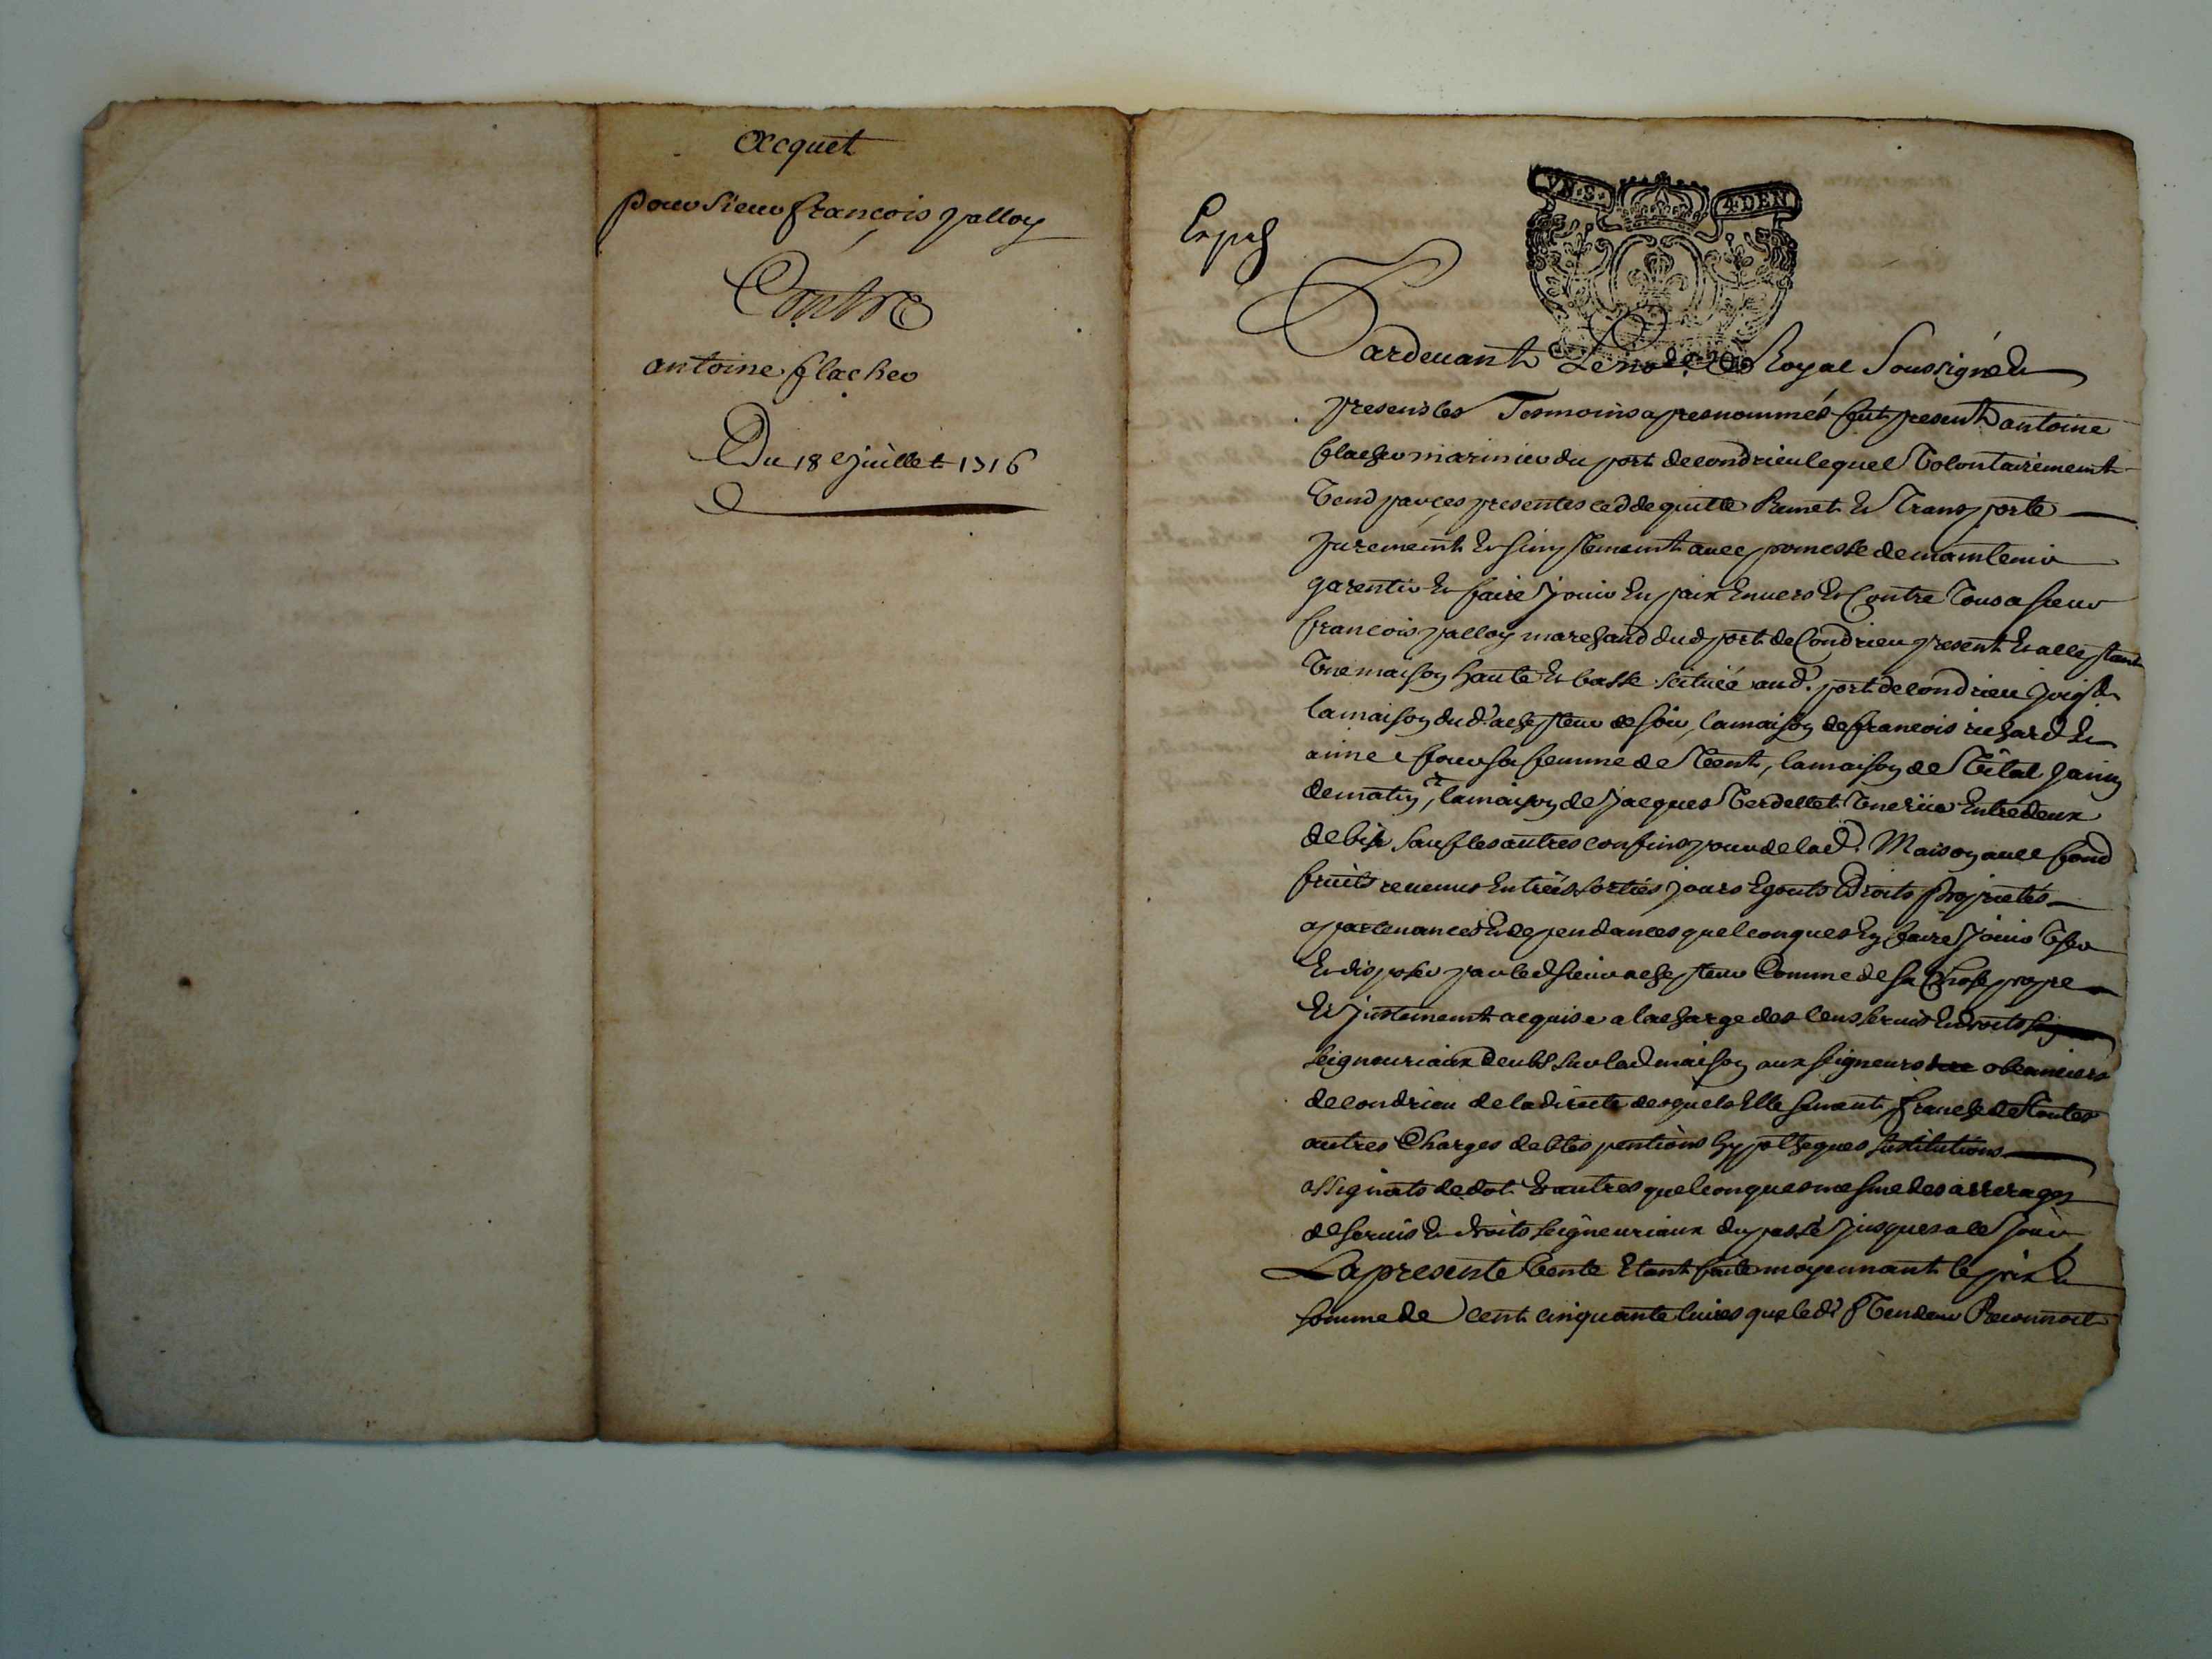 Acquet
pour Sieur françois palloy
Contre
antoine flacher
Du 18e Juillet 1716
Exped
VN. S. 4 DEN
Pardevant Le no.re Royal Soussigné &
presens les Tesmoins apres nommés fut present antoine
flacher marinier du port de condrieu lequel Volontairement
Vend par ces presentes cedde quitte Remet & Transporte
purement & simplement avec promesse de maintenir
garentir & faire Jouir En paix Envers & Contre Tous a sieur
francois palloy marchand dud port de Condrieu present & acceptant
Vne maison haute & basse scituée aud.t port de condrieu Joig.t
la maison dud.t achepteur de soir, la maison de francois richard &
anne four sa femme de Vent, la maison de Vital Janin
de matin, la maison de Jacques Verdellet Vne riie Entredeux
de bise sauf les autres confins pour de lad. Maison avec fond
fruits revenus Entrées sorties jours Egouts Droits proprietés
appartenances & dependances quelconques En faire Jouir Vser
& disposer par led sieur achepteur Comme de sa Chose propre
& Justement acquise a la charge des cens servis & droits
seigneuriaux deubs sur lad maison aux seigneurs obeanciers
de condrieu de la directe desquels Elle se meut, franche de Toutes
autres Charges debtes pentions hypotheques substitutions
assignats de dot & autres quelconques mesme des arrerages
de servis & droits seigneuriaux du passé Jusques a ce Jour
La presente Vente Etant faite moyennant le prix &
somme de Cent cinquante livres que led.t Vendeur Reconnoit